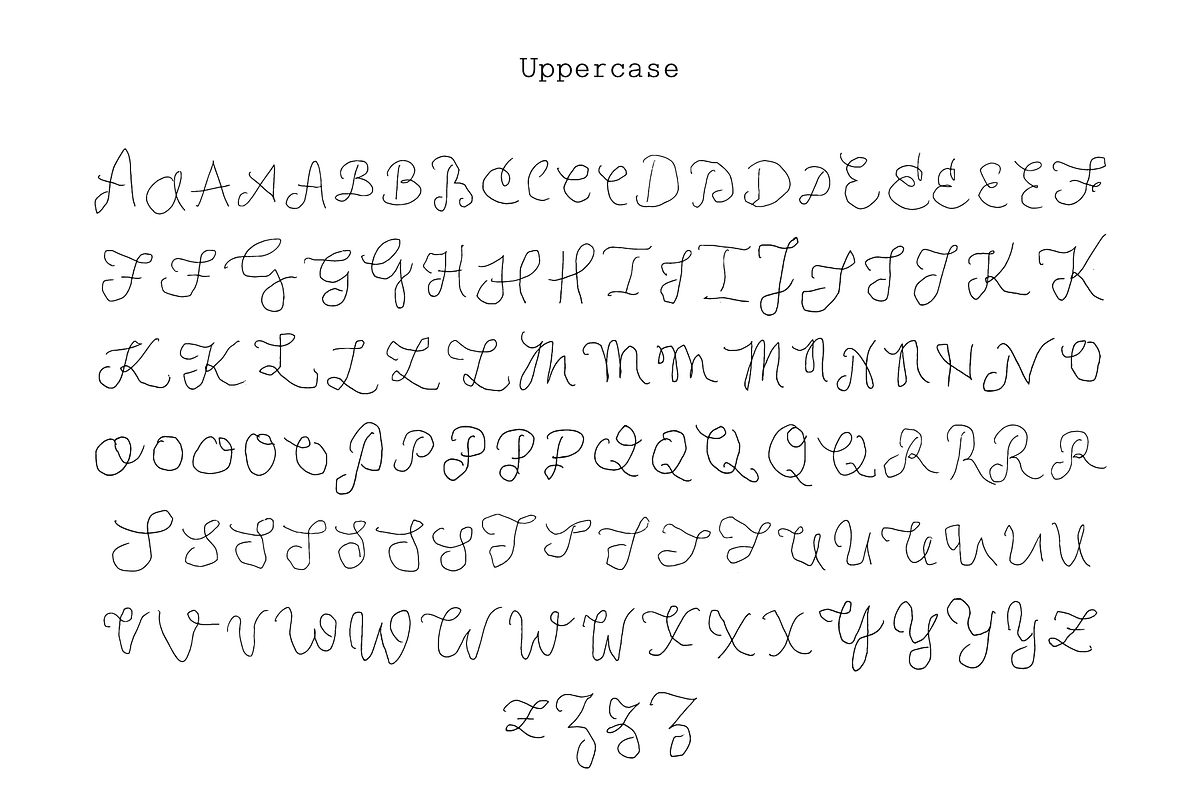 Uppercase
AAAAABBBCCCCDDDDEEEEEF
FFGGGHHHIIIJJJJKK
KKLLLLMMMMNNNNNO
OOOOOPPPPPQQQQQRRRR
SSSSSSSTTTTTUUUUUU
VVVWWWWWXXXYYYYZ
ZZZZ